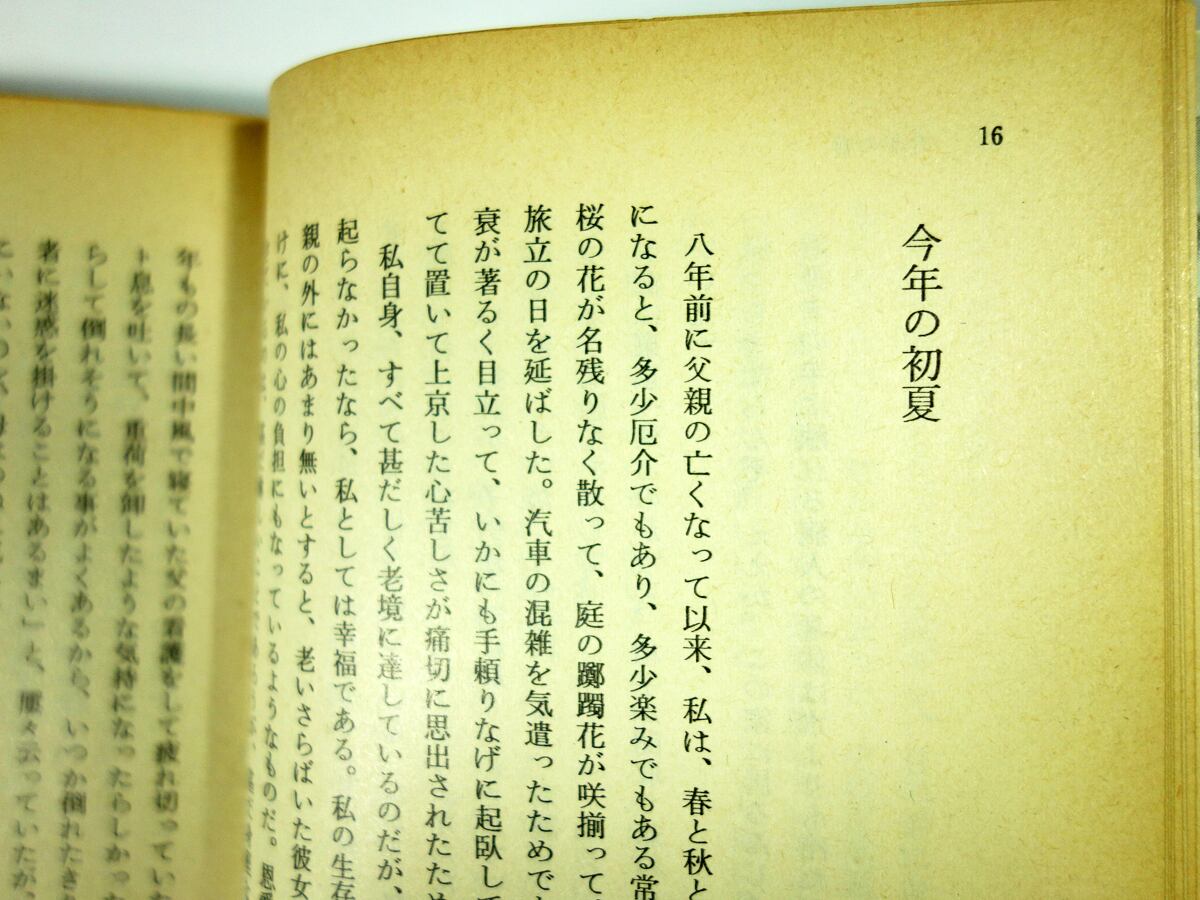 16
今年の初夏
八年前に父親の亡くなって以来、私は、春と秋と
になると、多少厄介でもあり、多少楽みでもある常
桜の花が名残りなく散って、庭の躑躅花が咲揃って
旅立の日を延ばした。汽車の混雑を気遣ったためで
衰が著るく目立って、いかにも手頼りなげに起臥して
てて置いて上京した心苦しさが痛切に思出されたため
私自身、すべて甚だしく老境に達しているのだが、
起らなかったなら、私としては幸福である。私の生存
親の外にはあまり無いとすると、老いさらばいた彼女
けに、私の心の負担にもなっているようなものだ。恩愛
年もの長い間中風で寝ていた父の看護をして疲れ切っていた
ト息を吐いて、重荷を卸したような気持になったらしかった
らして倒れそうになる事がよくあるから、いつか倒れたき
者に迷惑を掛けることはあるまい」と、屢々云っていたが、